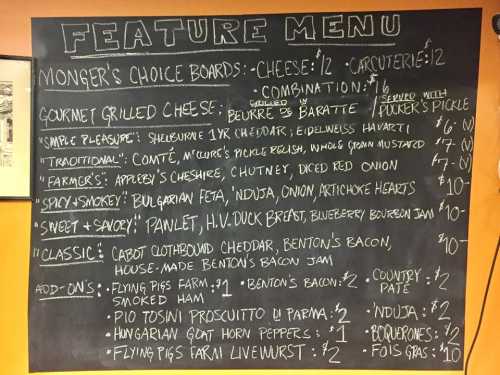 FEATURE MENU
MONGER'S CHOICE BOARDS: • CHEESE: $12 • CARCUTERIE: $12
• COMBINATION: $16
GOURMET GRILLED CHEESE: GRILLED IN BEURRE DE BARATTE / SERVED WITH PUCKER'S PICKLE
"SIMPLE PLEASURE": SHELBURNE 1 YR CHEDDAR, EIDELWEISS HAVARTI $6- (V)
"TRADITIONAL": COMTÉ, MCCLURE'S PICKLE RELISH, WHOLE GRAIN MUSTARD $7- (V)
"FARMER'S": APPLEBY'S CHESHIRE, CHUTNEY, DICED RED ONION $7- (V)
"SPICY + SMOKEY": BULGARIAN FETA, 'NDUJA, ONION, ARTICHOKE HEARTS $10-
"SWEET + SAVORY": PAWLET, H.V. DUCK BREAST, BLUEBERRY BOURBON JAM $10-
"CLASSIC": CABOT CLOTHBOUND CHEDDAR, BENTON'S BACON, $10-
HOUSE-MADE BENTON'S BACON JAM
ADD-ON'S: • FLYING PIGS FARM SMOKED HAM : $1 • BENTON'S BACON: $2 • COUNTRY PATÉ : $2
• PIO TOSINI PROSCIUTTO DI PARMA: $2 • 'NDUJA : $2
• HUNGARIAN GOAT HORN PEPPERS : $1 • BOQUERONES: $2
• FLYING PIGS FARM LIVERWURST : $2 • FOIS GRAS: $10